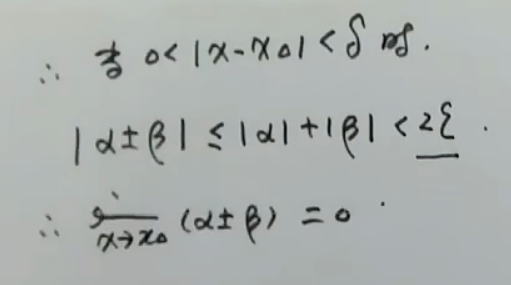 ∴ 当 0<|x-x₀|<δ 时.
|α±β| ≤ |α|+|β| < 2ε.
∴ lim x→x₀ (α±β) = 0.